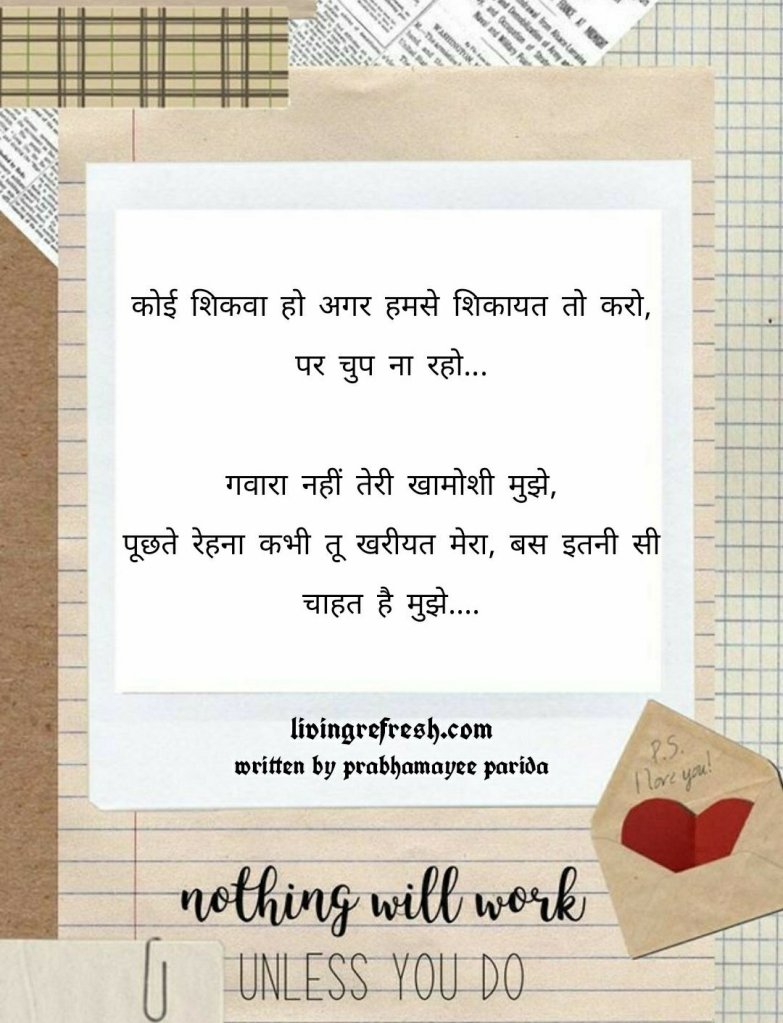 कोई शिकवा हो अगर हमसे शिकायत तो करो,
पर चुप ना रहो...
गवारा नहीं तेरी खामोशी मुझे,
पूछते रेहना कभी तू खरीयत मेरा, बस इतनी सी
चाहत है मुझे....
livingrefresh.com
written by prabhamayee parida
P.S.
I love you!
nothing will work
UNLESS YOU DO